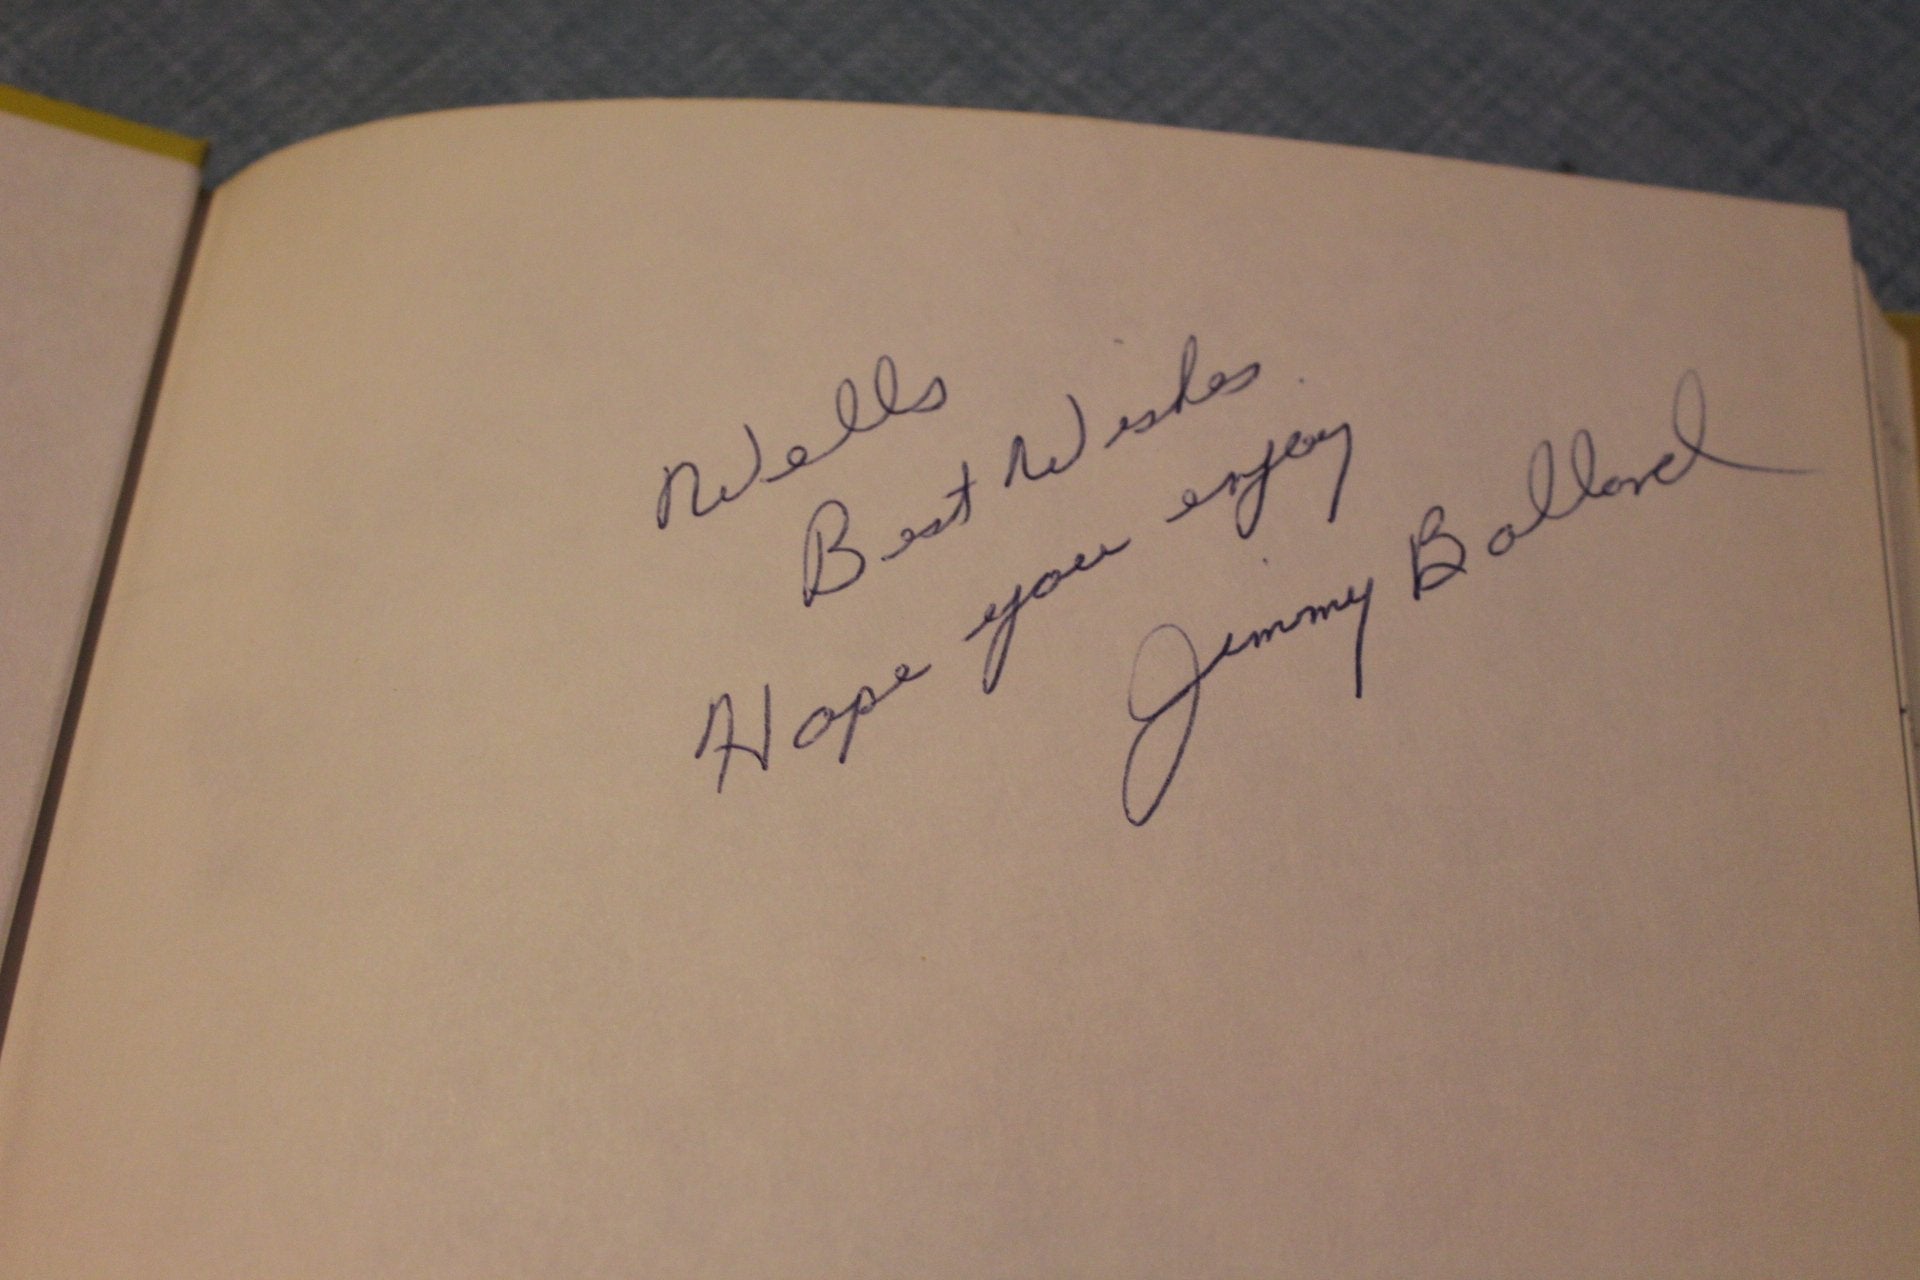 Wells
Best Wishes
Hope you enjoy
Jimmy Ballard